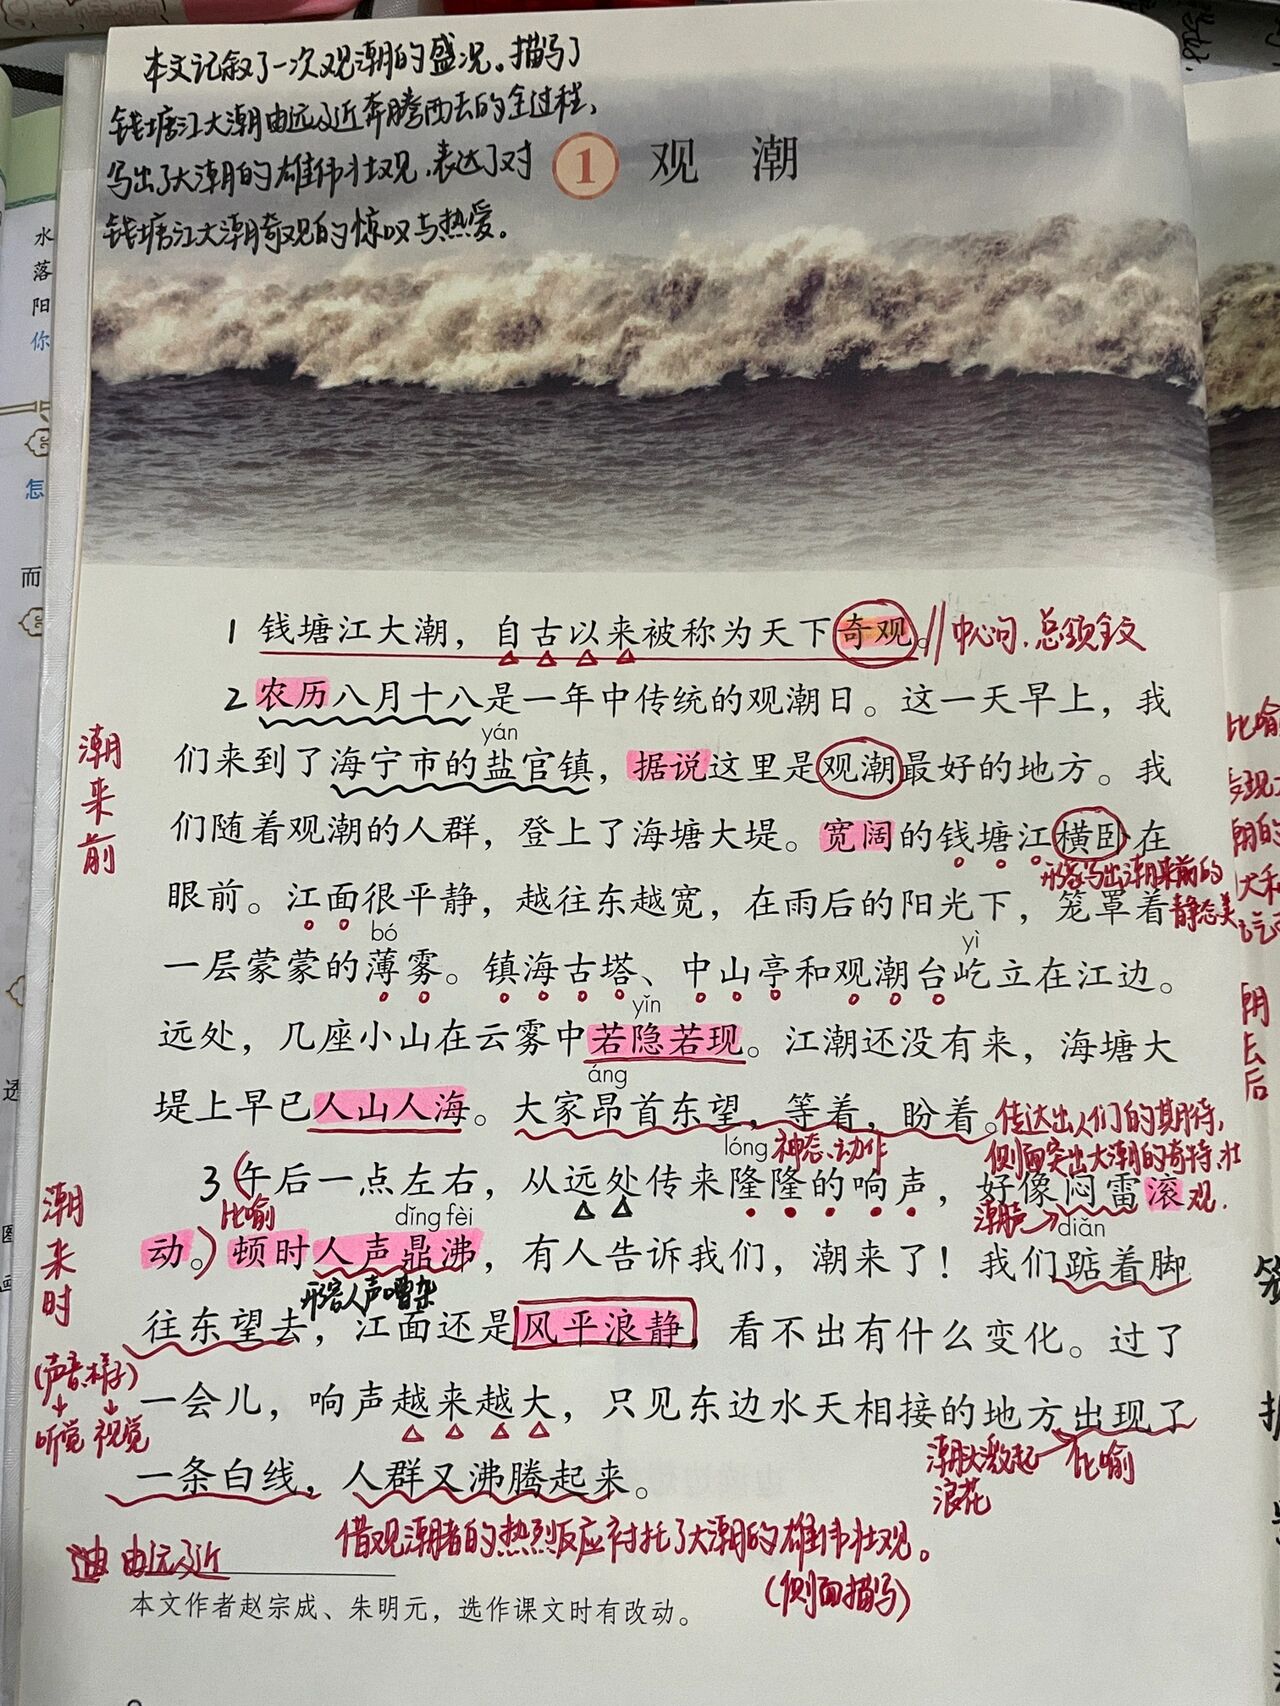 本文记叙了一次观潮的盛况。描写了
钱塘江大潮由远及近奔腾西去的全过程，
写出了大潮的雄伟壮观，表达了对
钱塘江大潮奇观的惊叹与热爱。
1 观 潮
水
落
阳
你
怎
而
1 钱塘江大潮，自古以来被称为天下奇观。
中心句，总领全文
2 农历八月十八是一年中传统的观潮日。这一天早上，我
yán
们来到了海宁市的盐官镇，据说这里是观潮最好的地方。我
潮来前
们随着观潮的人群，登上了海塘大堤。宽阔的钱塘江横卧在
形容写出潮来前的
静态美
眼前。江面很平静，越往东越宽，在雨后的阳光下，笼罩着
bó
yì
一层蒙蒙的薄雾。镇海古塔、中山亭和观潮台屹立在江边。
yǐn
远处，几座小山在云雾中若隐若现。江潮还没有来，海塘大
áng
堤上早已人山人海。大家昂首东望，等着，盼着。
传达出人们的期待，
侧面突出大潮的奇特、壮
观.
神态、动作
lóng
3 午后一点左右，从远处传来隆隆的响声，好像闷雷滚
潮来时
比喻
潮声
dǐng fèi
diǎn
动。顿时人声鼎沸，有人告诉我们，潮来了！我们踮着脚
形容人声嘈杂
往东望去，江面还是风平浪静，看不出有什么变化。过了
(声音、样子)
听觉 视觉
一会儿，响声越来越大，只见东边水天相接的地方出现了
潮水激起
浪花
比喻
一条白线，人群又沸腾起来。
借观潮者的热烈反应衬托了大潮的雄伟壮观。
(侧面描写)
由远及近
本文作者赵宗成、朱明元，选作课文时有改动。
比喻